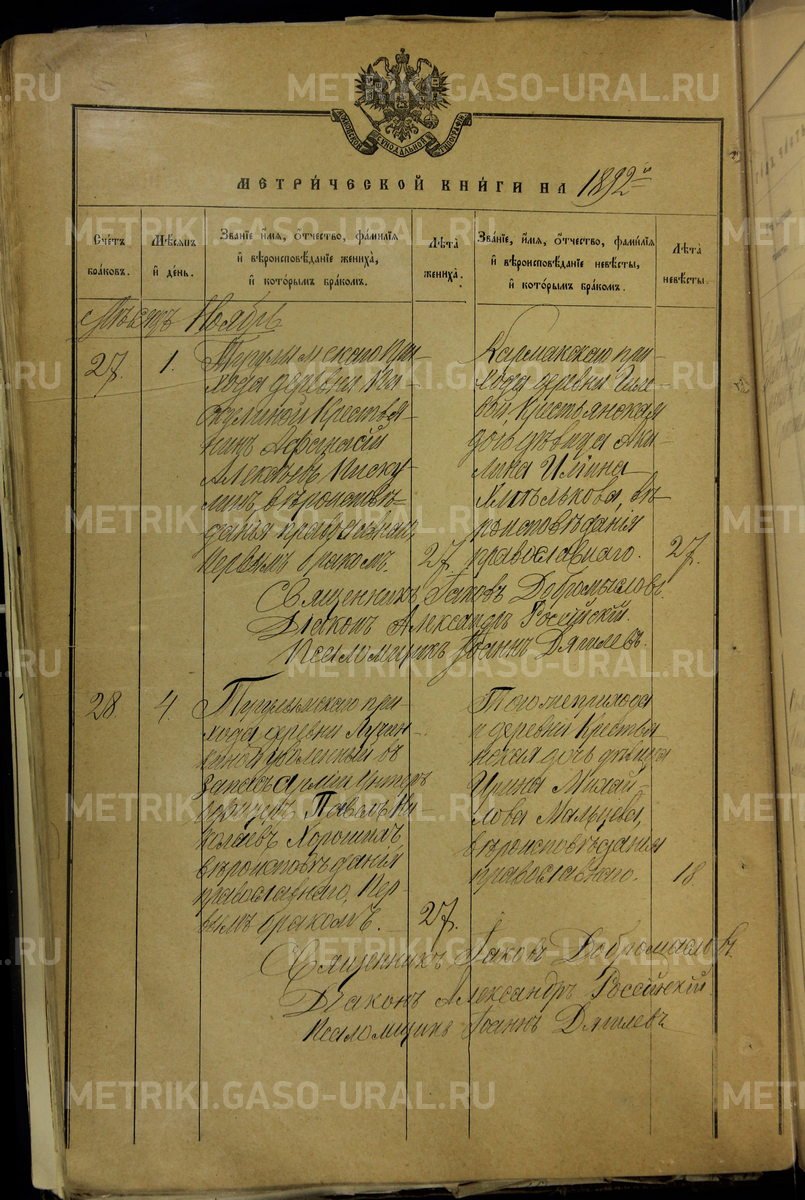 METRIKI.GASO-URAL.RU
МОСКОВСКОЙ СѴНОДАЛЬНОЙ ТИПОГРАФІИ
МЕТРИ́ЧЕСКОЙ КНИ́ГИ НА 1892й
Сче́тъ бра́ковъ.
Мѣ́сяцъ и҆ день.
Зва́нїе и҆́мя, ѻ҆́тчество, фамилїя и҆ вѣроисповѣ́данїе жениха̀, и҆ кото́рымъ бра́комъ.
Лѣ́та жениха̀.
Зва́нїе, и҆́мя, ѻ҆́тчество, фами́лїя и҆ вѣроисповѣ́данїе невѣ́сты, и҆ кото́рымъ бра́комъ.
Лѣ́та невѣ́сты.
Мѣсяцъ Ноябрь
27.
1.
Тугулымскаго при-
хода деревни Пи-
скулиной Крестья-
нинъ Афанасій
Алексѣевъ Писку-
линъ, вѣроисповѣ-
данія православнаго,
Первымъ бракомъ.
27.
Кармакскаго при-
хода деревни
Крестьянская
дочь дѣвица Аку-
лина
вѣ-
роисповѣданія
православнаго.
27.
Священникъ Іаковъ Добромысловъ.
Діаконъ Александръ Россійскій.
Псаломщикъ Іоаннъ Дягилевъ.
28.
4.
Тугулымскаго при-
хода деревни Лучин-
киной уволенный въ
запасъ арміи
Павелъ Ни-
колаевъ Хорошихъ,
вѣроисповѣданія
православнаго, Пер-
вымъ бракомъ.
27.
Того же прихода
и деревни Крестья-
нская дочь дѣвица
Ирина Михай-
лова Мальцева,
вѣроисповѣданія
православнаго.
18.
Священникъ Іаковъ Добромысловъ.
Діаконъ Александръ Россійскій
Псаломщикъ Іоаннъ Дягилевъ